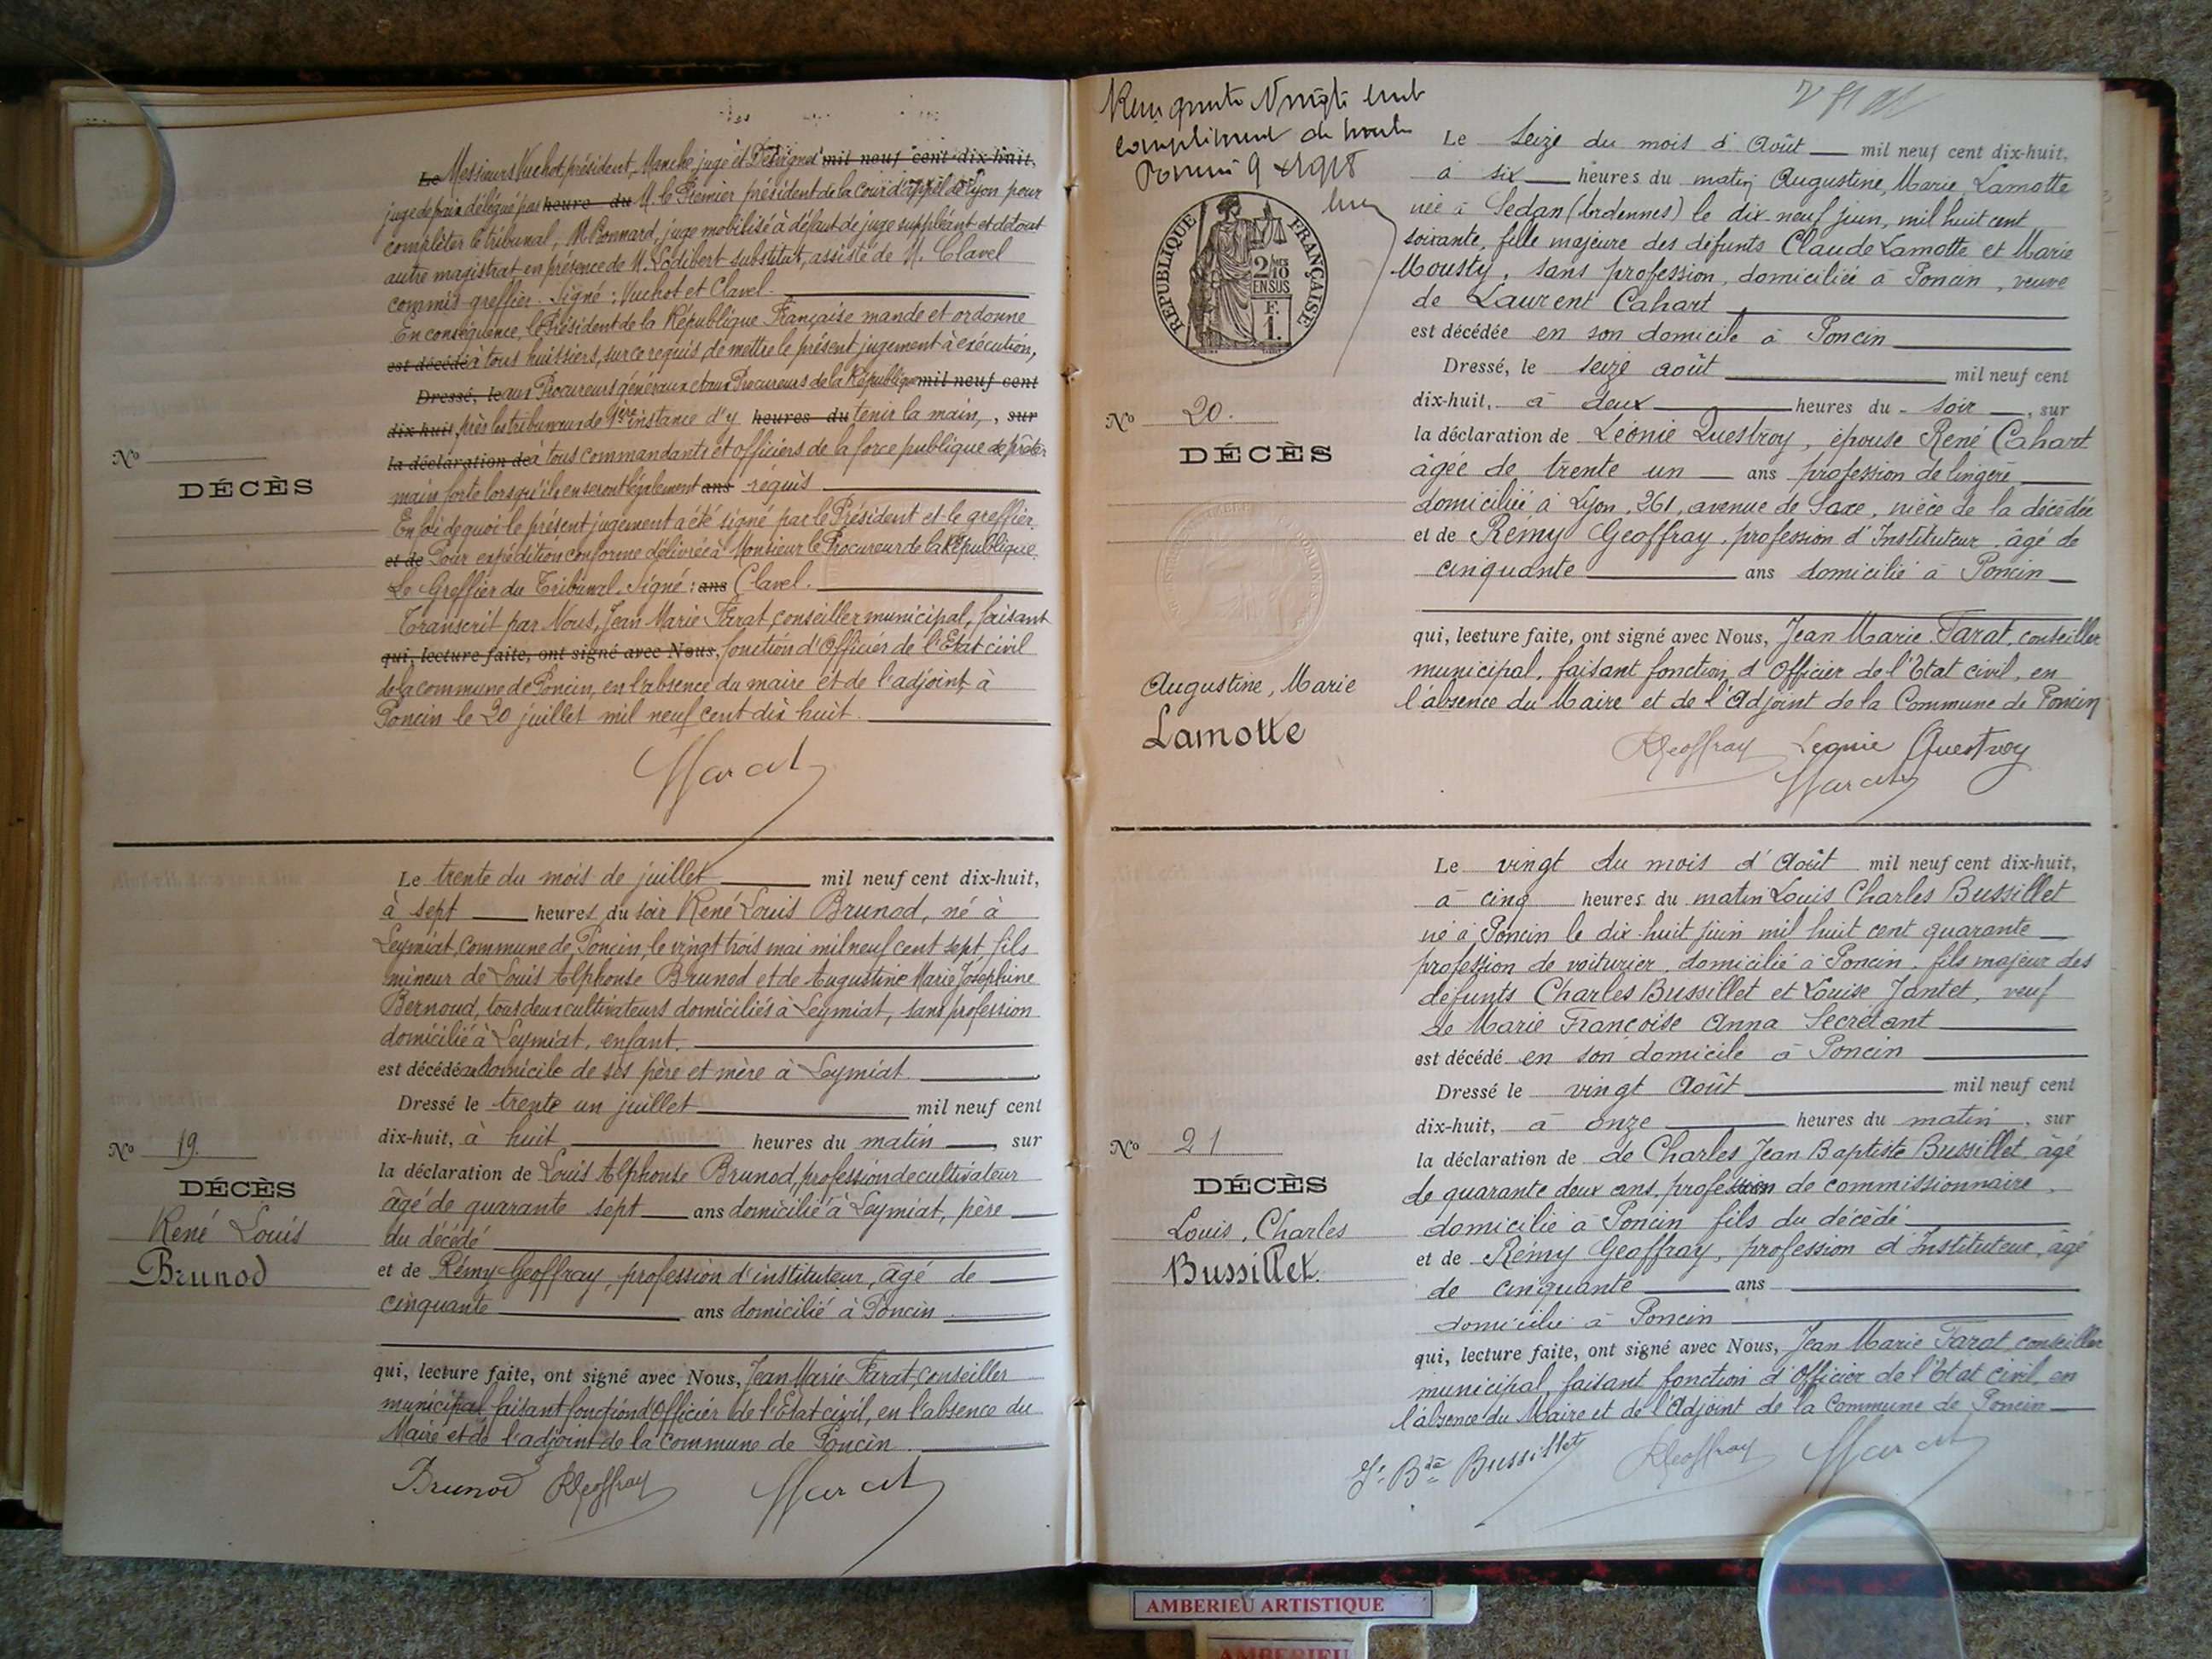 Le Messieurs Vuchot, président, Manche juge et Désvignes mil neuf cent dix-huit,
juge de paix délégué par heure du M. le Premier président de la cour d'appel de Lyon pour
compléter le tribunal, M. Bonnard, juge mobilisé à défaut de juge suppléant et de tout
autre magistrat en présence de M. substitut, assisté de M. Clavel
commis-greffier. Signé : Vuchot et Clavel.
En conséquence, le Président de la République Française mande et ordonne
est décédé à tous huissiers, sur ce requis, de mettre le présent jugement à exécution,
Dressé, le aux Procureurs généraux et aux Procureurs de la République mil neuf cent
dix-huit, près les tribunaux de 1ère instance d'y heures du tenir la main, , sur
la déclaration de à tous commandants et officiers de la force publique de prêter
main forte lorsqu'ils en seront légalement ans requis
En foi de quoi le présent jugement a été signé par le Président et le greffier.
et de Pour expédition conforme délivrée à Monsieur le Procureur de la République.
Le Greffier du Tribunal. Signé : ans Clavel.
Transcrit par Nous, Jean Marie Farat, conseiller municipal, faisant
qui, lecture faite, ont signé avec Nous, fonction d'Officier de l'Etat civil
de la commune de Poncin, en l'absence du maire et de l'adjoint, à
Poncin le 30 juillet mil neuf cent dix huit.
No
DÉCÈS
Farat
Le trente du mois de juillet mil neuf cent dix-huit,
à sept heures du soir René Louis Brunod, né à
Leymiat, commune de Poncin, le vingt trois mai mil neuf cent sept, fils
mineur de Louis Alphonse Brunod et de Augustine Marie Joséphine
Bernoud, tous deux cultivateurs domiciliés à Leymiat, sans profession
domicilié à Leymiat, enfant.
est décédé au domicile de ses père et mère à Leymiat.
Dressé le trente un juillet mil neuf cent
dix-huit, à huit heures du matin, sur
la déclaration de Louis Alphonse Brunod, profession de cultivateur
âgé de quarante sept ans domicilié à Leymiat, père
du décédé
et de Rémy Geoffray, profession d'instituteur, âgé de
cinquante ans domicilié à Poncin
qui, lecture faite, ont signé avec Nous, Jean Marie Farat, conseiller
municipal faisant fonction d'Officier de l'Etat civil, en l'absence du
Maire et de l'adjoint de la commune de Poncin.
No 19.
DÉCÈS
René Louis
Brunod
Brunod RGeoffray Farat
complément de
9
RÉPUBLIQUE FRANÇAISE
2/10
EN SUS
F.
1.
Le Seize du mois d'Août mil neuf cent dix-huit,
à six heures du matin Augustine, Marie Lamotte
née à Sedan (Ardennes) le dix neuf juin, mil huit cent
soixante, fille majeure des défunts Claude Lamotte et Marie
Mousty, sans profession, domiciliée à Poncin, veuve
de Laurent Cahart
est décédée en son domicile à Poncin
Dressé, le seize août mil neuf cent
dix-huit, à deux heures du soir, sur
la déclaration de Léonie Questroy, épouse René Cahart
âgée de trente un ans profession de lingère
domiciliée à Lyon, 261, avenue de Saxe, nièce de la décédée
et de Rémy Geoffray, profession d'Instituteur, âgé de
cinquante ans domicilié à Poncin
qui, lecture faite, ont signé avec Nous, Jean Marie Farat, conseiller
municipal, faisant fonction d'Officier de l'Etat civil, en
l'absence du Maire et de l'Adjoint de la Commune de Poncin
No 20.
DÉCÈS
Augustine, Marie
Lamotte
RGeoffray Léonie Questroy
Farat
Le vingt du mois d'Août mil neuf cent dix-huit,
à cinq heures du matin Louis Charles Bussillet
né à Poncin le dix-huit juin mil huit cent quarante
profession de voiturier, domicilié à Poncin, fils majeur des
défunts Charles Bussillet et Louise Jantet, veuf
de Marie Françoise Anna Secretant
est décédé en son domicile à Poncin
Dressé le vingt Août mil neuf cent
dix-huit, à onze heures du matin, sur
la déclaration de de Charles Jean Baptiste Bussillet, âgé
de quarante deux ans, profession de commissionnaire,
domicilié à Poncin fils du décédé
et de Rémy Geoffray, profession d'Instituteur, âgé
de cinquante ans
domicilié à Poncin
qui, lecture faite, ont signé avec Nous, Jean Marie Farat, conseiller
municipal, faisant fonction d'Officier de l'Etat civil, en
l'absence du Maire et de l'Adjoint de la Commune de Poncin
No 21
DÉCÈS
Louis, Charles
Bussillet.
Jn Bte Bussillet RGeoffray Farat
AMBERIEU ARTISTIQUE
AMBERIEU